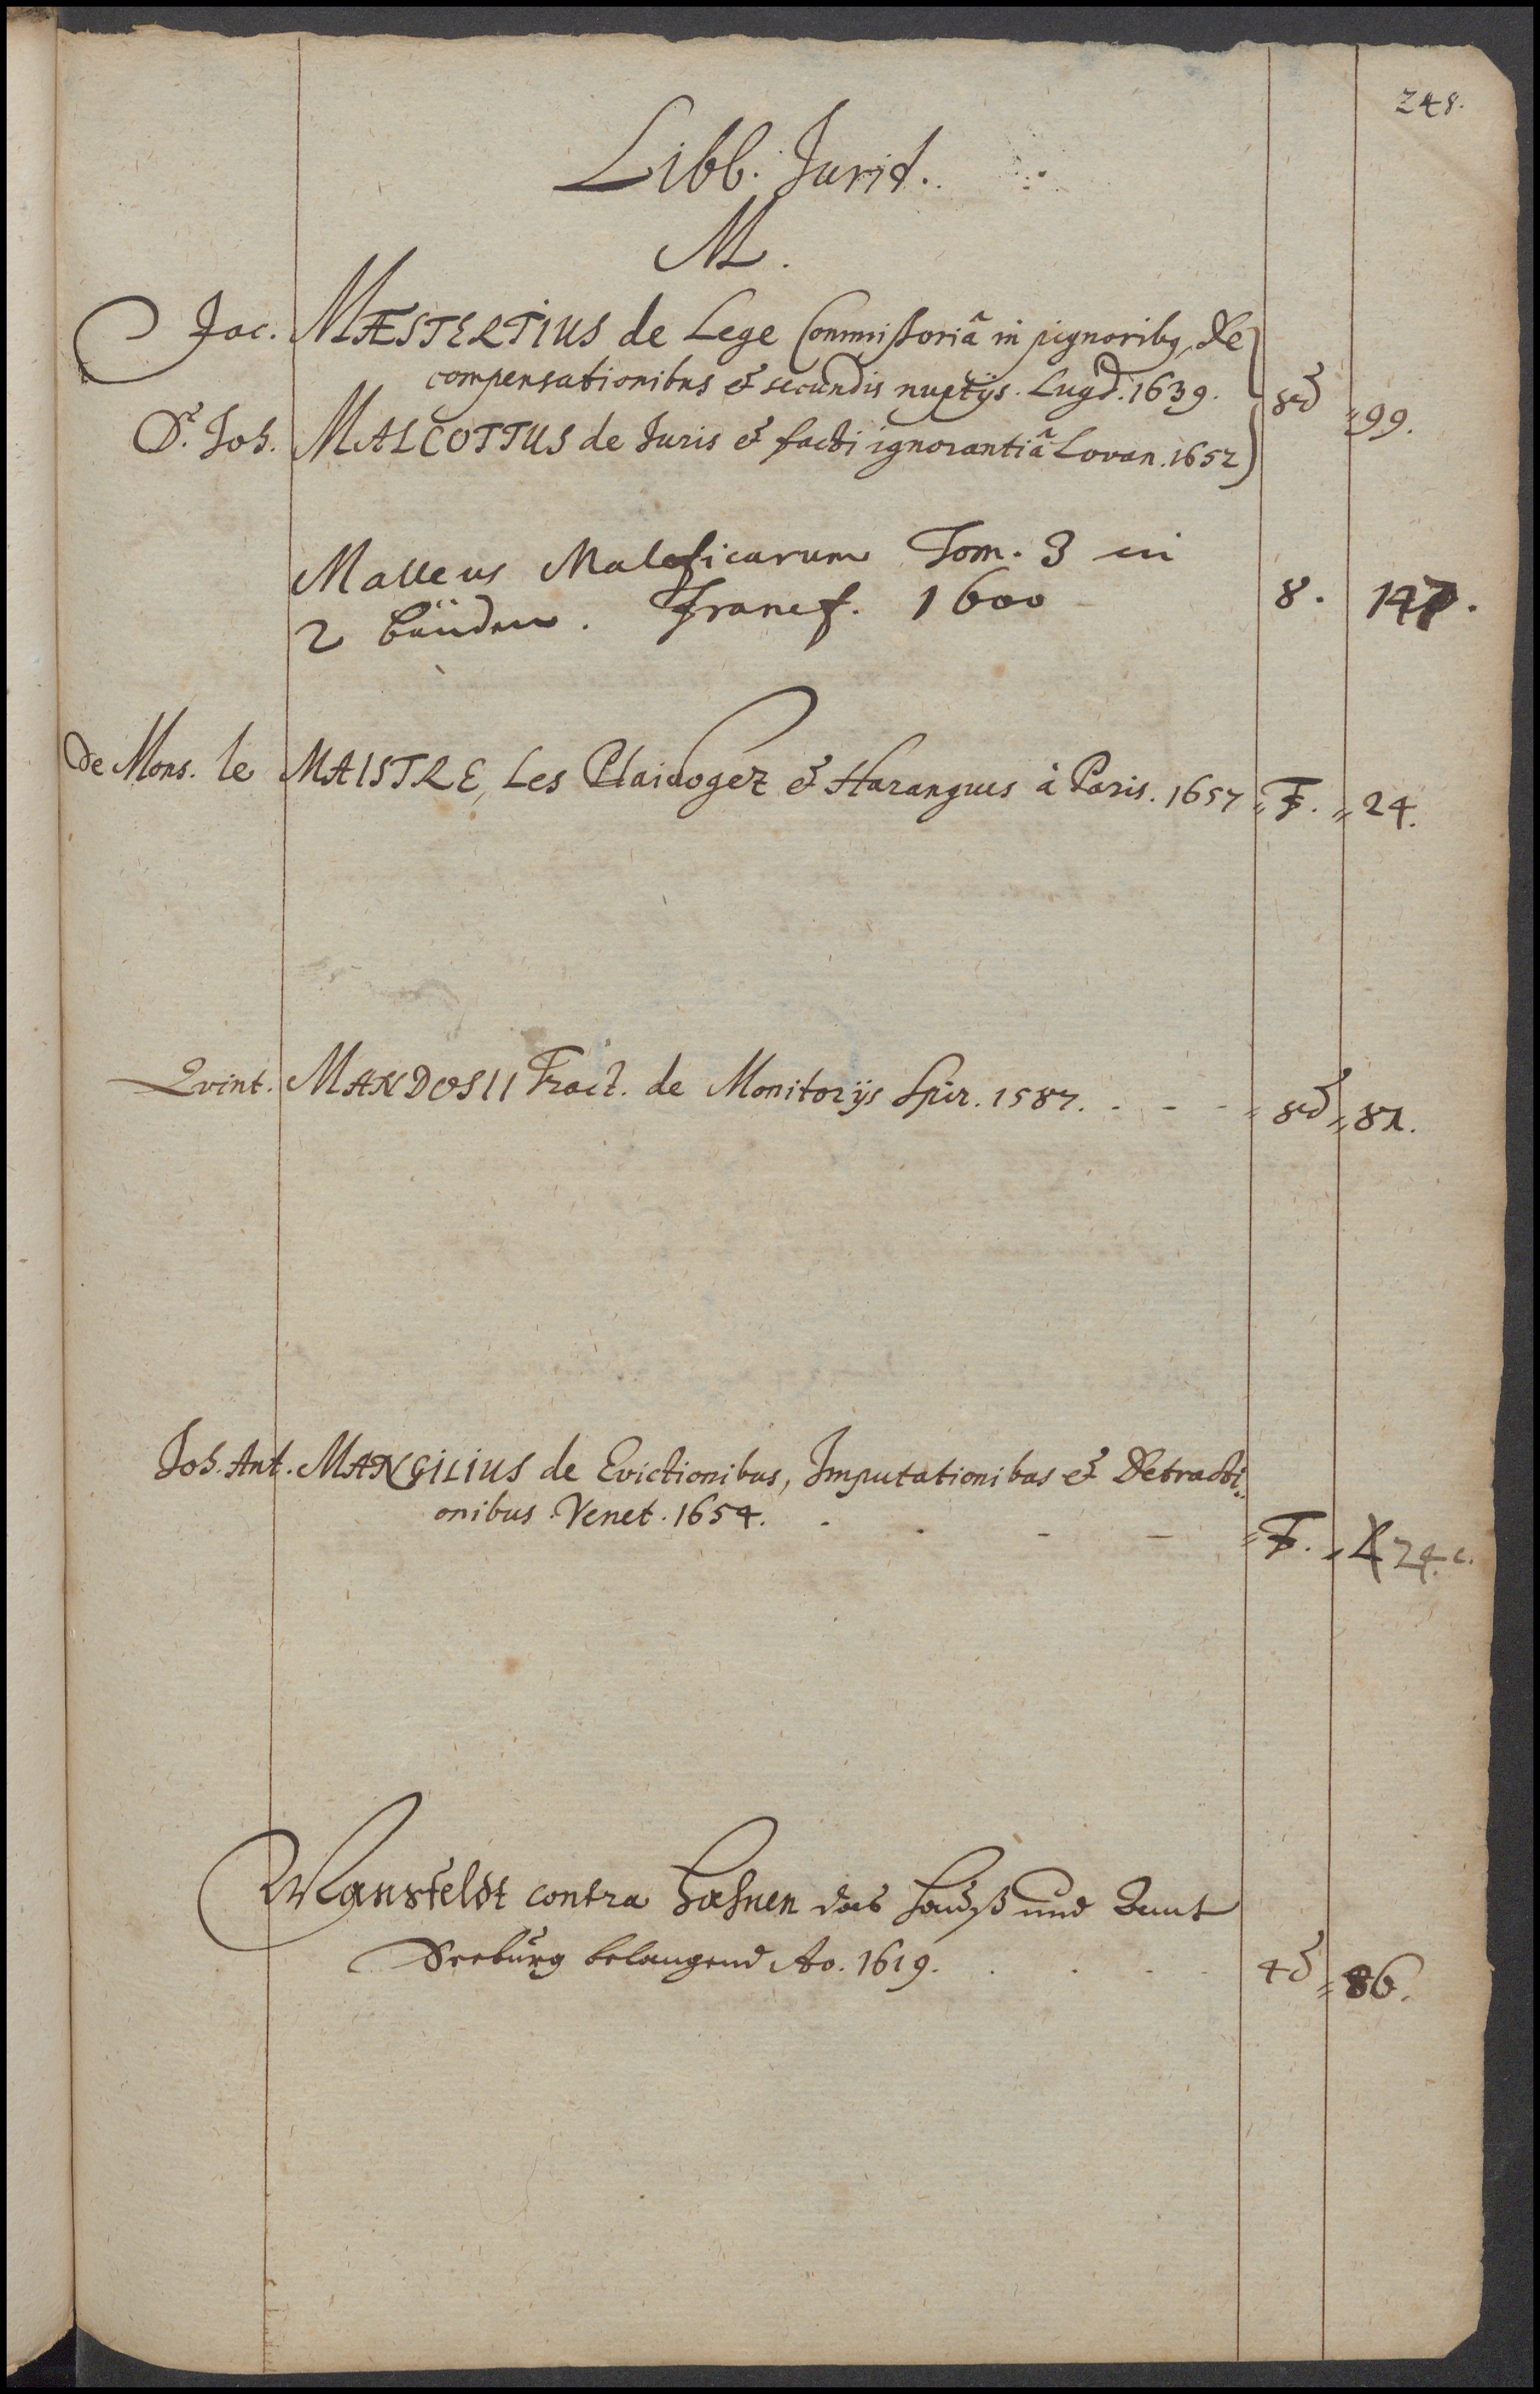 248.
Libb. Jurid.
M.
Jac. MÆSTERTIUS de Lege Commissoriâ in pignoribq, De
compensationibus & secundis nuptijs. Lugd. 1639.
8ᵒ 99.
D. Joh. MALCOTTUS de Juris & facti ignorantiâ Lovan. 1652
Malleus Maleficarum Tom. 3 in
2 bänden. Francf. 1600 8. 147.
de Mons. le MAISTRE, Les Plaidoyez & Harangues à Paris. 1657 F. 24.
Qvint. MANDOSII Tract. de Monitorijs Spir. 1587. 8ᵒ 81.
Joh. Ant. MANGILIUS de Evictionibus, Imputationibus & Detracti
onibus. Venet. 1654. F. 24.c.
Mansfeldt contra Hahnen das Hauß und Ambt
Seeburg belangend Ao. 1619. 4ᵒ 86.